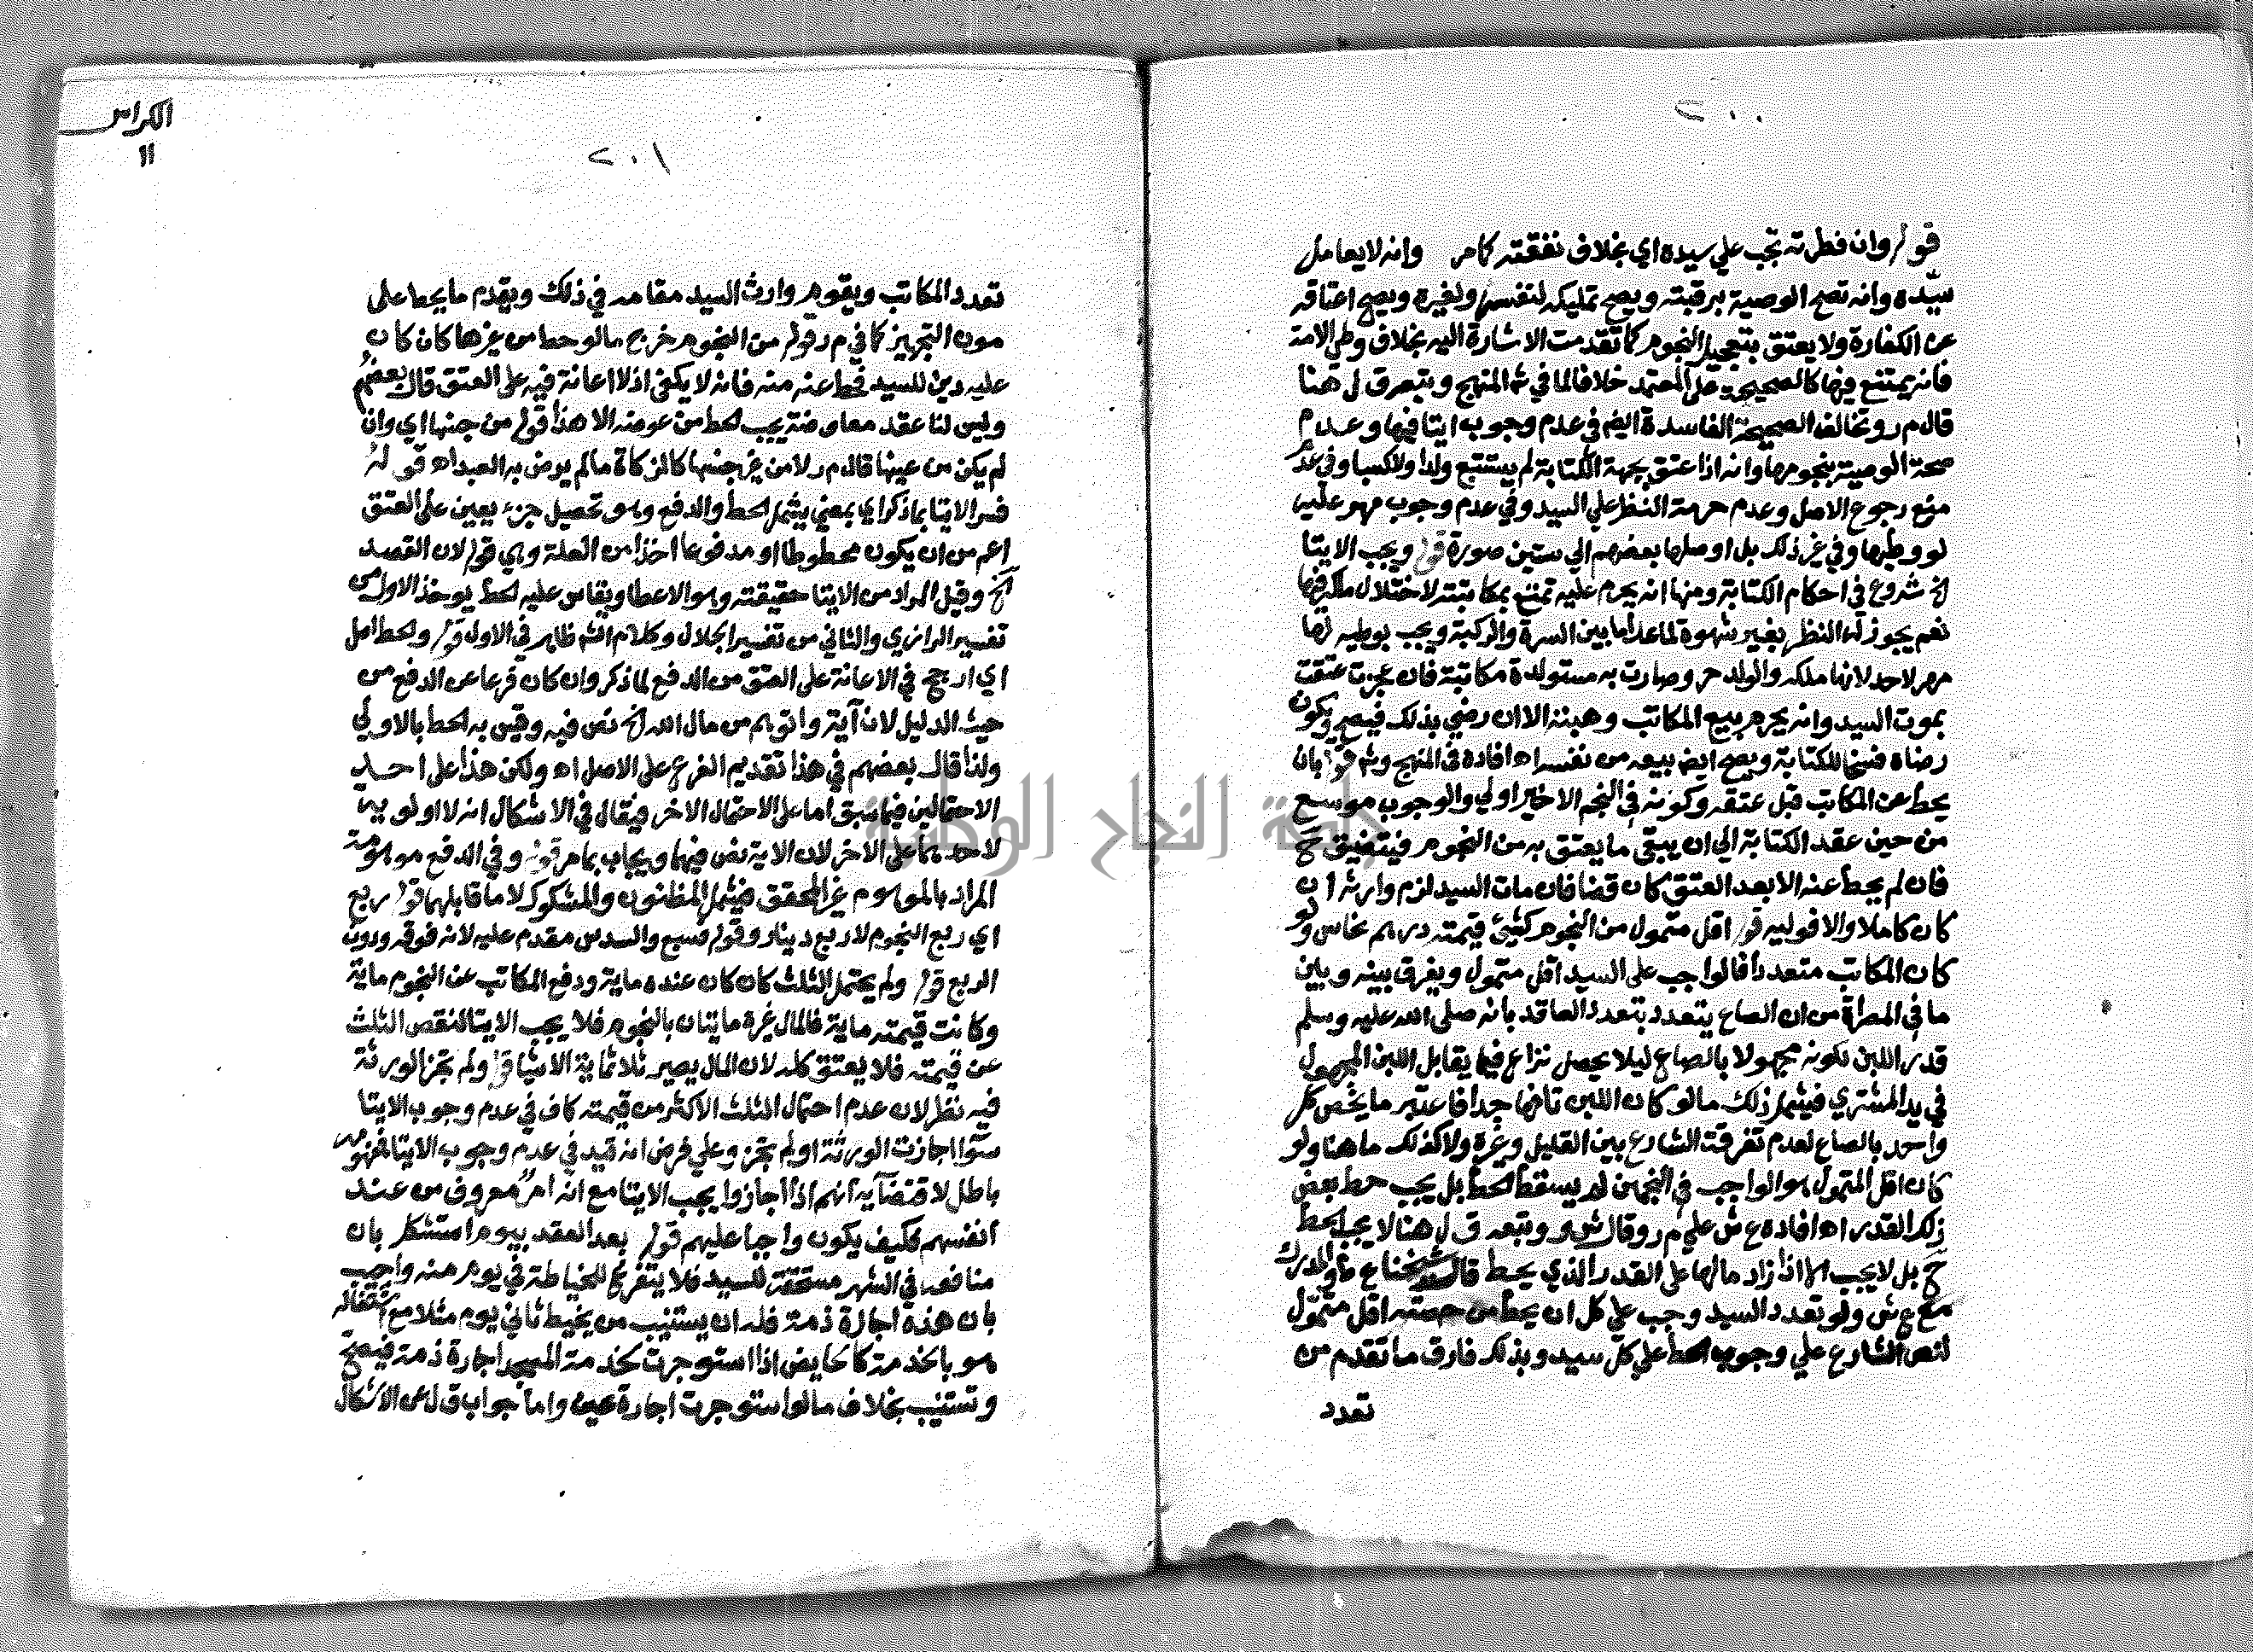 ٢٠٠
قوله وان فطرته تجب علي سيده اي بخلاف نفقته كما مر وانه لا يعامل
سيده وانه تصح الوصية برقبته ويصح تمليكه لنفسها ولغيره ويصح اعتاقه
عن الكفارة ولا يعتق بتعجيل النجوم كما تقدمت الاشارة اليه بخلاف وطئ الامة
فانه يمتنع فيها كالصحيحة علي المعتمد خلافا لما في شم المنهج ويتعرق ل هنا
قال م ر وتخالف الصحيحة الفاسدة ايضا في عدم وجوب ايتا فيها وعدم
صحة الوصية بنجومها وانه اذا عتق بجهة الكتابة لم يستتبع ولدا ولا كسبا وفي عدم
منع رجوع الاصل وعدم حرمة النظر علي السيد وفي عدم وجوب مهر عليه
لو وطيها وفي غير ذلك بل اوصلها بعضهم الي ستين صورة قوله ويجب الايتا
الخ شروع في احكام الكتابة ومنها انه يحرم عليه تمتع بمكاتبته لاختلال ملكه فيها
نعم يجوز له النظر بغير شهوة لما عدا ما بين السرة والركبة ويجب بوطيه لها
مهر لاحد لانها ملكه والولد حر وصارت به مستولدة مكاتبة فان عجزت عتقت
بموت السيد وانه يحرم بيع المكاتب وهبته الا ان رضي بذلك فيصح ويكون
رضاه فسخا للكتابة ويصح ايضا بيعه من نفسه اه افاده في المنهج وشم قوله بان
يحط عن المكاتب قبل عتقه وكونه في النجم الاخير اولي والوجوب موسع
من حين عقد الكتابة الي ان يبقي ما يعتق به من النجوم فيتضيق ح
فان لم يحط عنه الا بعد العتق كان قضا فان مات السيد لزم وارثه ان
كان كاملا والا فوليه قوله اقل متمول من النجوم كشئ قيمته درهم نحاس ولو
كان المكاتب متعددا فالواجب علي السيد اقل متمول ويفرق بينه وبين
ما في المصراة من ان الصاع يتعدد بتعدد العاقد بانه صلي الله عليه وسلم
قدر اللبن لكونه مجهولا بالصاع ليلا يحصل نزاع فيما يقابل اللبن المجهول
في يد المشتري فيشمل ذلك ما لو كان اللبن تافها جدا فاعتبر ما يخص كل
واحد بالصاع لعدم تفرقة الشارع بين القليل وغيره ولا كذلك ما هنا ولو
كان اقل المتمول هو الواجب في النجمين لم يسقط الحط بل يجب حط بعض
ذلك القدر اه افاده ع ش علي م ر وقال ش و وبتعه ق ل هنا لا يجب الحط
ح بل لا يجب الا اذا زاد مالها علي القدر الذي يحط قال شيخنا ع والمدرك
مع ع ش ولو تعدد السيد وجب علي كل ان يحط من حصته اقل متمول
لنص الشارع علي وجوب الحط علي كل سيد وبذلك فارق ما تقدم من
تعدد
الكراس
١١
٢٠١
تعدد المكاتب ويقوم وارث السيد مقامه في ذلك ويقدم ما يحط علي
مون التجهيز كما في م ر قوله من النجوم خرج ما لو حط من غيرها كان كان
عليه دين للسيد فحط عنه منه فانه لا يكفي اذ لا اعانة فيه علي العتق قال بعضهم
وليس لنا عقد معاوضة يجب الحط من عوضه الا هذا قوله من جنسها اي وان
لم يكن من عينها قال م ر لا من غير جنسها كالزكاة ما لم يرض به العبد اه قوله
فسر الايتا بما ذكر اي بمعني يشمل الحط والدفع وهو تحصيل جزء يعين علي العتق
اعم من ان يكون محطوطا او مدفوعا اخذا من العلة وهي قوله لان القصد
الخ وقيل المراد من الايتا حقيقته وهو الاعطا ويقاس عليه الحط يوخذ الاول من
تفسير الرازي والثاني من تفسير الجلال وكلام الشم ظاهر في الاول قوله والحط اصل
اي ارجح في الاعانة علي العتق من الدفع لما ذكر وان كان فرعا عن الدفع من
حيث الدليل لان آية واتوهم من مال الله الخ نص فيه وقيس به الحط بالاولي
ولذا قال بعضهم في هذا تقديم الفرع علي الاصل اه ولكن هذا علي احد
الاحتمالين فيما سبق اما علي الاحتمال الاخر فيقال في الاشكال انه لا اولويه
لاحدهما علي الاخر لان الاية نص فيها ويجاب بما مر قوله وفي الدفع موهومة
المراد بالموهوم غير المحقق فيشمل المظنون والمشكوك لا ما قابلهما قوله ربع
اي ربع النجوم لا ربع دينار وقوله فسبع والسدس مقدم عليه لانه فوقه ودون
الربع قوله ولم يحتمل الثلث كان كان عنده ماية ودفع المكاتب عن النجوم ماية
وكانت قيمته ماية فالمال غيره مايتان بالنجوم فلا يجب الايتا لنقص الثلث
عن قيمته فلا يعتق كله لان المال يصير ثلاثماية الاشيا قوله ولم تجز الورثة
فيه نظر لان عدم احتمال الثلث الاكثر من قيمته كاف في عدم وجوب الايتا
سوا اجازت الورثة او لم تجز وعلي فرض انه قيد في عدم وجوب الايتا فمفهومه
باطل لاقتضايه انهم اذا اجازوا يجب الايتا مع انه امر معروف من عند
انفسهم فكيف يكون واجبا عليهم قوله بعد العقد بيوم استشكل بان
منافعه في الشهر مستحقة للسيد فلا يتفرغ للخياطة في يوم منه واجيب
بان هذه اجارة ذمة فله ان يستنيب من يخيط ثاني يوم مثلا مع اشتغاله
هو بالخدمة كالحايض اذا استوجرت لخدمة المسجد اجارة ذمة فيصح
وتستنيب بخلاف ما لو استوجرت اجارة عين واما جواب ق ل عن الاشكال